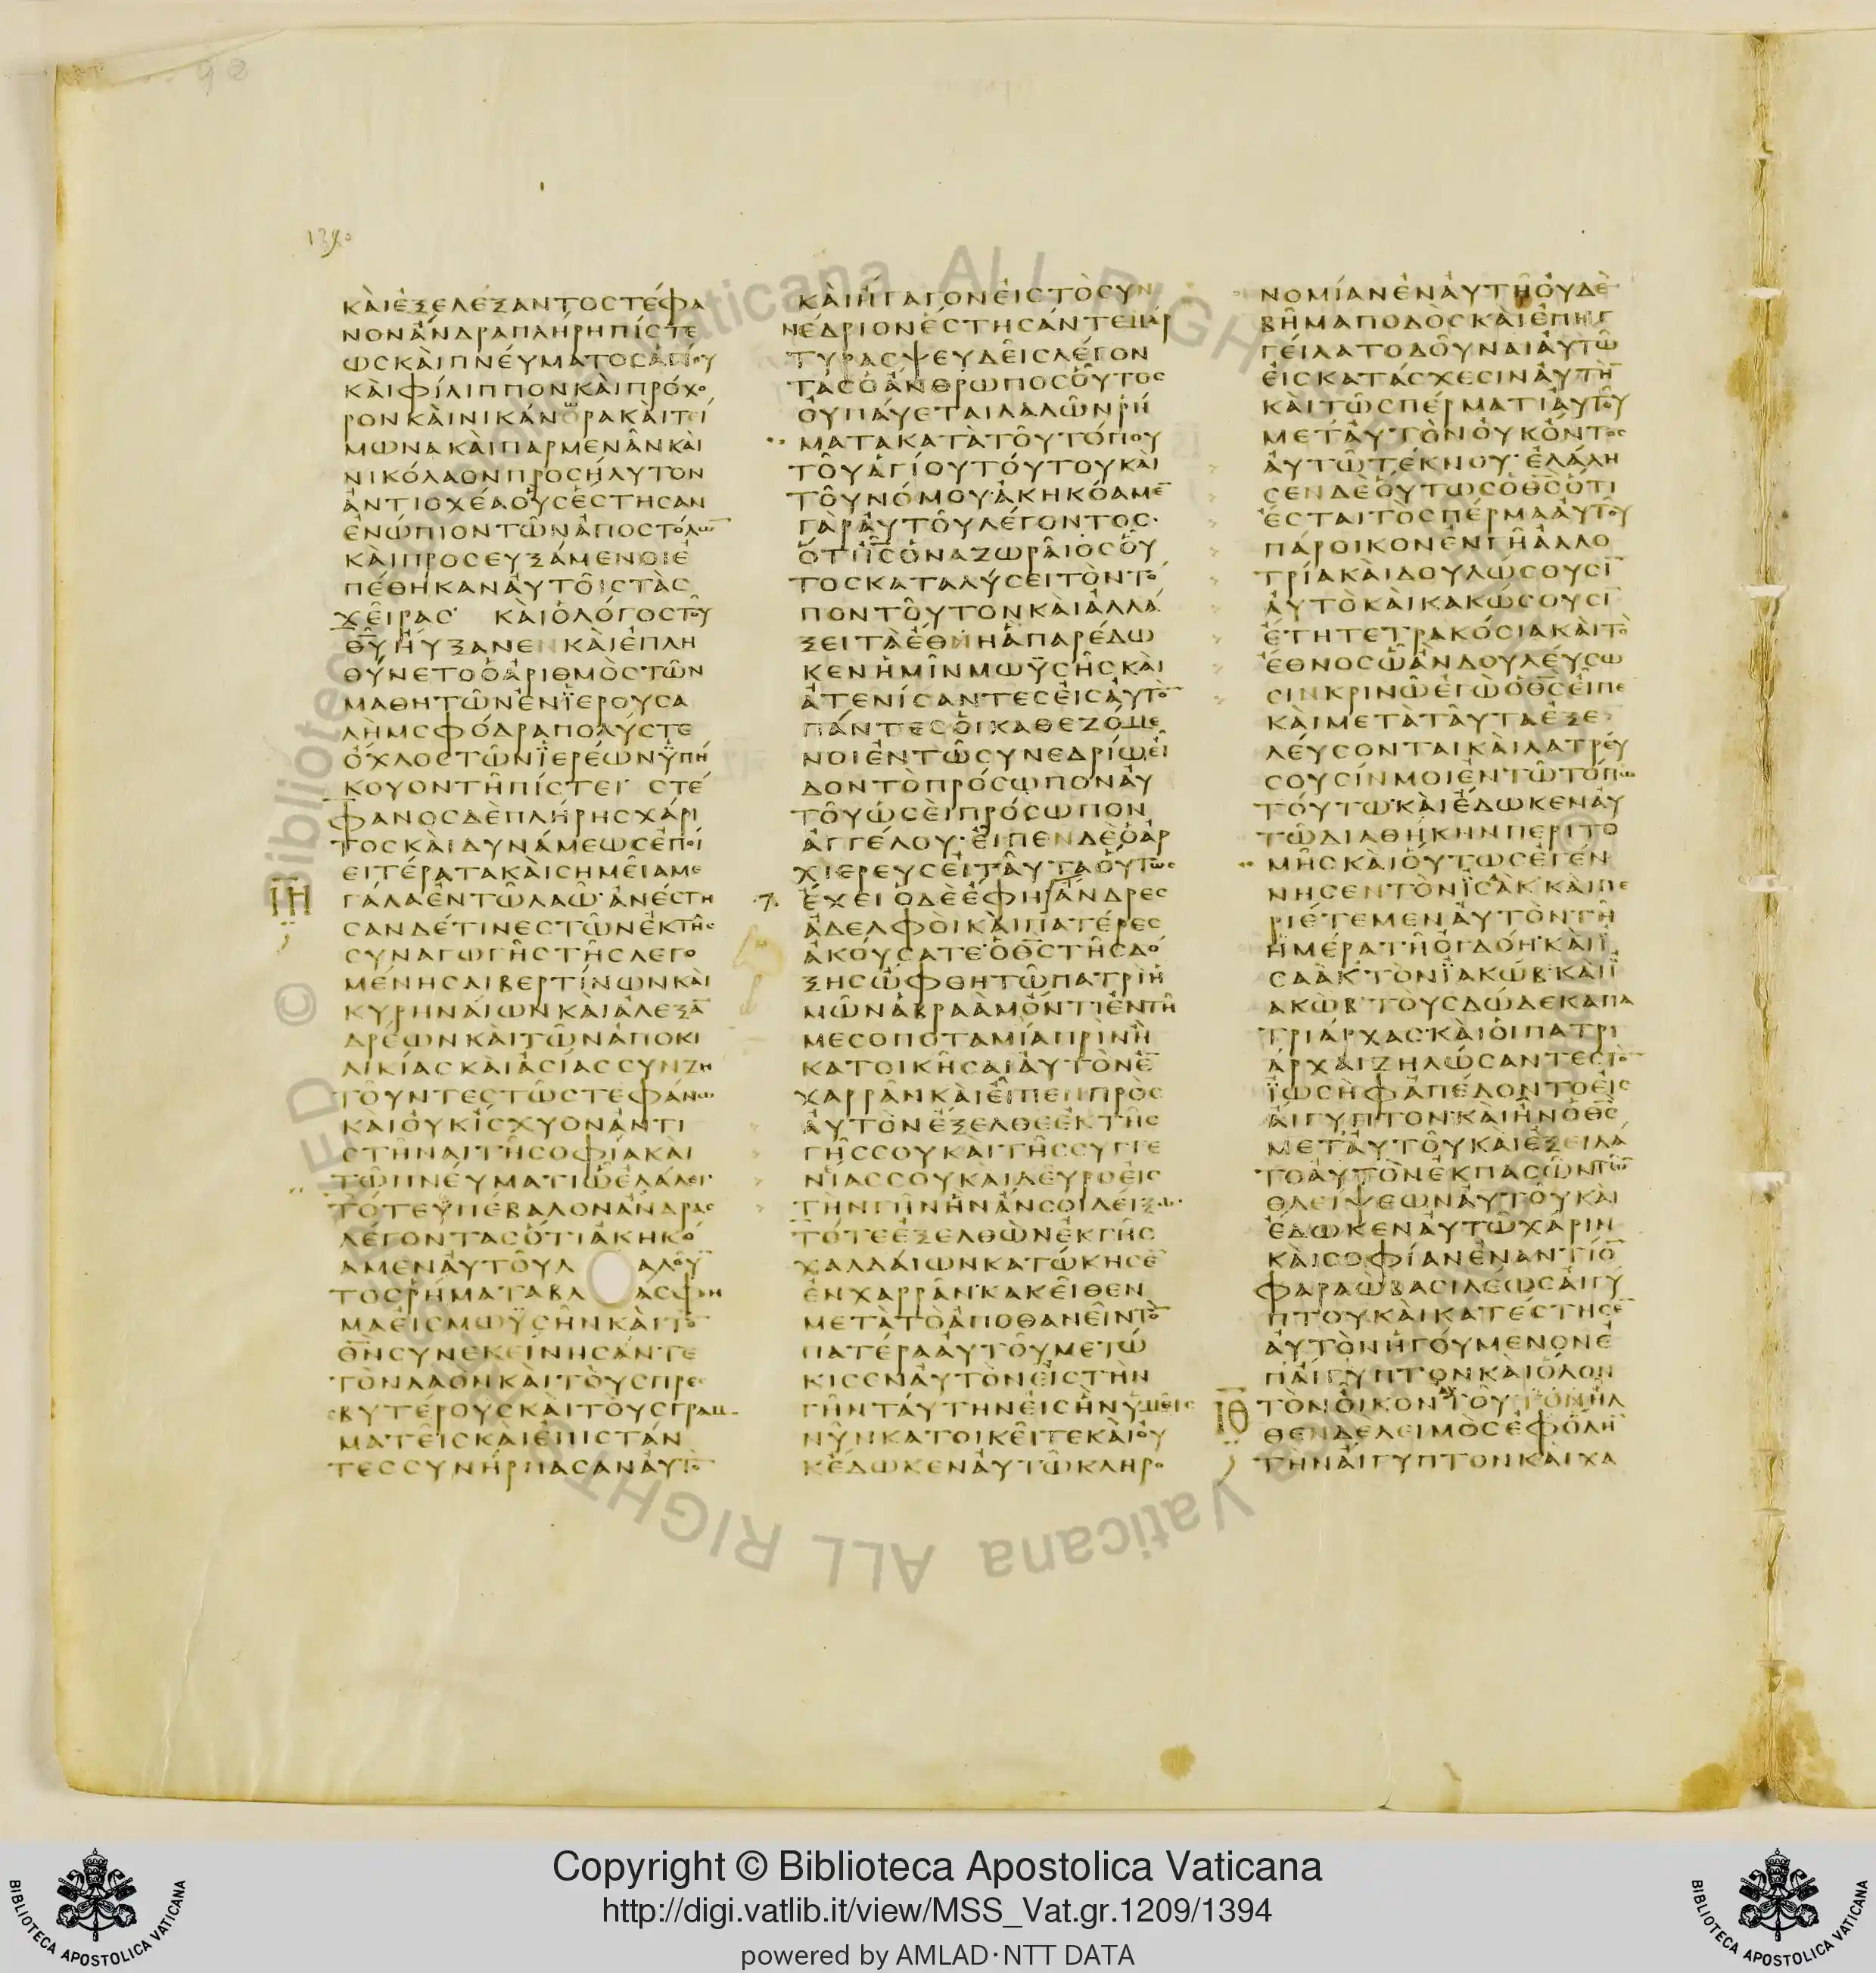 139·
ΚΑΙΕΞΕΛΕΞΑΝΤΟΣΤΕΦΑ
ΝΟΝΑΝΔΡΑΠΛΗΡΗΠΙΣΤΕ
ΩΣΚΑΙΠΝΕΥΜΑΤΟΣΑΓΙΟΥ
ΚΑΙΦΙΛΙΠΠΟΝΚΑΙΠΡΟΧΟ
ΡΟΝΚΑΙΝΙΚΑΝΟΡΑΚΑΙΤΕΙ
ΜΩΝΑΚΑΙΠΑΡΜΕΝΑΝΚΑΙ
ΝΙΚΟΛΑΟΝΠΡΟΣΗΛΥΤΟΝ
ΑΝΤΙΟΧΕΑΟΥΣΕΣΤΗΣΑΝ
ΕΝΩΠΙΟΝΤΩΝΑΠΟΣΤΟΛΩ̅
ΚΑΙΠΡΟΣΕΥΞΑΜΕΝΟΙΕ
ΠΕΘΗΚΑΝΑΥΤΟΙΣΤΑΣ
ΧΕΙΡΑΣ· ΚΑΙΟΛΟΓΟΣΤΟΥ
Θ̅Υ̅ΗΥΞΑΝΕΝΚΑΙΕΠΛΗ
ΘΥΝΕΤΟΟΑΡΙΘΜΟΣΤΩΝ
ΜΑΘΗΤΩΝΕΝΪΕΡΟΥΣΑ
ΛΗΜΣΦΟΔΡΑΠΟΛΥΣΤΕ
ΟΧΛΟΣΤΩΝΪΕΡΕΩΝΫΠΗ
ΚΟΥΟΝΤΗΠΙΣΤΕΙ· ΣΤΕ
ΦΑΝΟΣΔΕΠΛΗΡΗΣΧΑΡΙ
ΤΟΣΚΑΙΔΥΝΑΜΕΩΣΕΠΟΙ
ΕΙΤΕΡΑΤΑΚΑΙΣΗΜΕΙΑΜΕ
Ι̅Η̅ ΓΑΛΑΕΝΤΩΛΑΩ· ΑΝΕΣΤΗ
ΣΑΝΔΕΤΙΝΕΣΤΩΝΕΚΤΗΣ
ΣΥΝΑΓΩΓΗΣΤΗΣΛΕΓΟ
ΜΕΝΗΣΛΙΒΕΡΤΙΝΩΝΚΑΙ
ΚΥΡΗΝΑΙΩΝΚΑΙΑΛΕΞΑ̅
ΔΡΕΩΝΚΑΙΤΩΝΑΠΟΚΙ
ΛΙΚΙΑΣΚΑΙΑΣΙΑΣΣΥΝΖΗ
ΤΟΥΝΤΕΣΤΩΣΤΕΦΑΝΩ
ΚΑΙΟΥΚΙΣΧΥΟΝΑΝΤΙ
ΣΤΗΝΑΙΤΗΣΟΦΙΑΚΑΙ
ΤΩΠΝΕΥΜΑΤΙΩΕΛΑΛΕΙ·
ΤΟΤΕΥΠΕΒΑΛΟΝΑΝΔΡΑΣ
ΛΕΓΟΝΤΑΣΟΤΙΑΚΗΚΟ
ΑΜΕΝΑΥΤΟΥΛ ΑΛΟΥ̅
ΤΟΣΡΗΜΑΤΑΒΛ ΑΣΦΗ
ΜΑΕΙΣΜΩΫΣΗΝΚΑΙΤΟ̅
Θ̅Ν̅ΣΥΝΕΚΕΙΝΗΣΑΝΤΕ
ΤΟΝΛΑΟΝΚΑΙΤΟΥΣΠΡΕ
ΣΒΥΤΕΡΟΥΣΚΑΙΤΟΥΣΓΡΑΜ
ΜΑΤΕΙΣΚΑΙΕΠΙΣΤΑΝ
ΤΕΣΣΥΝΗΡΠΑΣΑΝΑΥΤΟ̅
ΚΑΙΗΓΑΓΟΝΕΙΣΤΟΣΥΝ
ΝΕΔΡΙΟΝΕΣΤΗΣΑΝΤΕΜΑΡ
ΤΥΡΑΣΨΕΥΔΕΙΣΛΕΓΟΝ
ΤΑΣΟΑΝΘΡΩΠΟΣΟΥΤΟΣ
ΟΥΠΑΥΕΤΑΙΛΑΛΩΝΡΗ
ΜΑΤΑΚΑΤΑΤΟΥΤΟΠΟΥ
ΤΟΥΑΓΙΟΥΤΟΥΤΟΥΚΑΙ
ΤΟΥΝΟΜΟΥ·ΑΚΗΚΟΑΜΕ̅
ΓΑΡΑΥΤΟΥΛΕΓΟΝΤΟΣ·
ΟΤΙΙ̅Σ̅ΟΝΑΖΩΡΑΙΟΣΟΥ
ΤΟΣΚΑΤΑΛΥΣΕΙΤΟΝΤΟ
ΠΟΝΤΟΥΤΟΝΚΑΙΑΛΛΑ
ΞΕΙΤΑΕΘΝΗΑΠΑΡΕΔΩ
ΚΕΝΗΜΙΝΜΩΫΣΗΣΚΑΙ
ΑΤΕΝΙΣΑΝΤΕΣΕΙΣΑΥΤΟ̅
ΠΑΝΤΕΣΟΙΚΑΘΕΖΟΜΕ
ΝΟΙΕΝΤΩΣΥΝΕΔΡΙΩΕΙ
ΔΟΝΤΟΠΡΟΣΩΠΟΝΑΥ
ΤΟΥΩΣΕΙΠΡΟΣΩΠΟΝ
ΑΓΓΕΛΟΥ· ΕΙΠΕΝΔΕΟΑΡ
ΧΙΕΡΕΥΣΕΙΤΑΥΤΑΟΥΤΩΣ
7. ΕΧΕΙΟΔΕΕΦΗΑΝΔΡΕΣ
ΑΔΕΛΦΟΙΚΑΙΠΑΤΕΡΕΣ
ΑΚΟΥΣΑΤΕ·ΟΘ̅Σ̅ΤΗΣΔΟ
ΞΗΣΩΦΘΗΤΩΠΑΤΡΙΗ
ΜΩΝΑΒΡΑΑΜΟΝΤΙΕΝΤΗ
ΜΕΣΟΠΟΤΑΜΙΑΠΡΙΝΗ
ΚΑΤΟΙΚΗΣΑΙΑΥΤΟΝΕ̅
ΧΑΡΡΑΝΚΑΙΕΙΠΕΝΠΡΟΣ
ΑΥΤΟΝΕΞΕΛΘΕΕΚΤΗΣ
ΓΗΣΣΟΥΚΑΙΤΗΣΣΥΓΓΕ
ΝΙΑΣΣΟΥΚΑΙΔΕΥΡΟΕΙΣ
ΤΗΝΓΗΝΗΝΑΝΣΟΙΔΕΙΞΩ·
ΤΟΤΕΕΞΕΛΘΩΝΕΚΓΗΣ
ΧΑΛΔΑΙΩΝΚΑΤΩΚΗΣΕ̅
ΕΝΧΑΡΡΑΝ·ΚΑΚΕΙΘΕΝ
ΜΕΤΑΤΟΑΠΟΘΑΝΕΙΝΤΟ̅
ΠΑΤΕΡΑΑΥΤΟΥΜΕΤΩ
ΚΙΣΕΝΑΥΤΟΝΕΙΣΤΗΝ
ΓΗΝΤΑΥΤΗΝΕΙΣΗΝΫΜΕΙΣ
ΝΥΝΚΑΤΟΙΚΕΙΤΕΚΑΙΟΥ
ΚΕΔΩΚΕΝΑΥΤΩΚΛΗΡΟ
ΝΟΜΙΑΝΕΝΑΥΤΗΟΥΔΕ
ΒΗΜΑΠΟΔΟΣΚΑΙΕΠΗΓ
ΓΕΙΛΑΤΟΔΟΥΝΑΙΑΥΤΩ
ΕΙΣΚΑΤΑΣΧΕΣΙΝΑΥΤΗ̅
ΚΑΙΤΩΣΠΕΡΜΑΤΙΑΥΤΟΥ
ΜΕΤΑΥΤΟΝΟΥΚΟΝΤΟΣ
ΑΥΤΩΤΕΚΝΟΥ· ΕΛΑΛΗ
ΣΕΝΔΕΟΥΤΩΣΟΘ̅Σ̅ΟΤΙ
ΕΣΤΑΙΤΟΣΠΕΡΜΑΑΥΤΟΥ
ΠΑΡΟΙΚΟΝΕΝΓΗΑΛΛΟ
ΤΡΙΑΚΑΙΔΟΥΛΩΣΟΥΣΙ̅
ΑΥΤΟΚΑΙΚΑΚΩΣΟΥΣΙ̅
ΕΤΗΤΕΤΡΑΚΟΣΙΑΚΑΙΤΟ
ΕΘΝΟΣΩΑΝΔΟΥΛΕΥΣΩ
ΣΙΝΚΡΙΝΩΕΓΩΟΘ̅Σ̅ΕΙΠΕ
ΚΑΙΜΕΤΑΤΑΥΤΑΕΞΕ
ΛΕΥΣΟΝΤΑΙΚΑΙΛΑΤΡΕΥ
ΣΟΥΣΙΝΜΟΙΕΝΤΩΤΟΠΩ
ΤΟΥΤΩ·ΚΑΙΕΔΩΚΕΝΑΥ
ΤΩΔΙΑΘΗΚΗΝΠΕΡΙΤΟ
ΜΗΣΚΑΙΟΥΤΩΣΕΓΕΝ
ΝΗΣΕΝΤΟΝΪΣΑΚ·ΚΑΙΠΕ
ΡΙΕΤΕΜΕΝΑΥΤΟΝΤΗ
ΗΜΕΡΑΤΗΟΓΔΟΗ·ΚΑΙΪ
ΣΑΑΚ·ΤΟΝΪΑΚΩΒ·ΚΑΙΪ
ΑΚΩΒ·ΤΟΥΣΔΩΔΕΚΑΠΑ
ΤΡΙΑΡΧΑΣ·ΚΑΙΟΙΠΑΤΡΙ
ΑΡΧΑΙΖΗΛΩΣΑΝΤΕΣΤΟ̅
ΪΩΣΗΦΑΠΕΔΟΝΤΟΕΙΣ
ΑΙΓΥΠΤΟΝ·ΚΑΙΗΝΟΘ̅Σ̅
ΜΕΤΑΥΤΟΥΚΑΙΕΞΕΙΛΑ
ΤΟΑΥΤΟΝΕΚΠΑΣΩΝΤΩ̅
ΘΛΕΙΨΕΩΝΑΥΤΟΥΚΑΙ
ΕΔΩΚΕΝΑΥΤΩΧΑΡΙΝ
ΚΑΙΣΟΦΙΑΝΕΝΑΝΤΙΟ̅
ΦΑΡΑΩΒΑΣΙΛΕΩΣΑΙΓΥ
ΠΤΟΥΚΑΙΚΑΤΕΣΤΗΣΕ̅
ΑΥΤΟΝΗΓΟΥΜΕΝΟΝΕ
ΠΑΙΓΥΠΤΟΝΚΑΙΟΛΟΝ
Ι̅Θ̅ ΤΟΝΟΙΚΟΝΑΥΤΟΥ·ΗΛ
ΘΕΝΔΕΛΕΙΜΟΣΕΦΟΛΗ̅
ΤΗΝΑΙΓΥΠΤΟΝΚΑΙΧΑ
Copyright © Biblioteca Apostolica Vaticana
http://digi.vatlib.it/view/MSS_Vat.gr.1209/1394
powered by AMLAD·NTT DATA
BIBLIOTECA APOSTOLICA VATICANA
BIBLIOTECA APOSTOLICA VATICANA